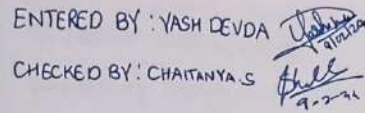 ENTERED BY : YASH DEVDA
9/02/24
CHECKED BY : CHAITANYA.S
9-2-24